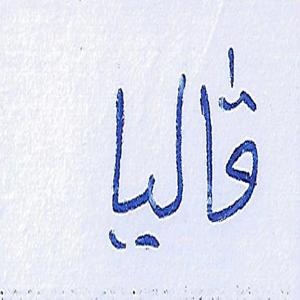 ڨاليا